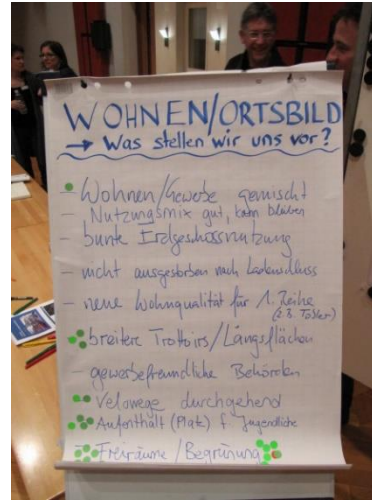 WOHNEN/ORTSBILD
→ Was stellen wir uns vor?
- Wohnen/Gewerbe gemischt
- Nutzungsmix gut, kann bleiben
- bunte Erdgeschossnutzung
- nicht ausgestorben nach Ladenschluss
- neue Wohnqualität für 1. Reihe
(z.B. Tobler)
- breitere Trottoirs/Längsflächen
- gewerbefreundliche Behörden
- Velowege durchgehend
- Aufenthalt (Platz) f Jugendliche
- Freiräume/Begrünung